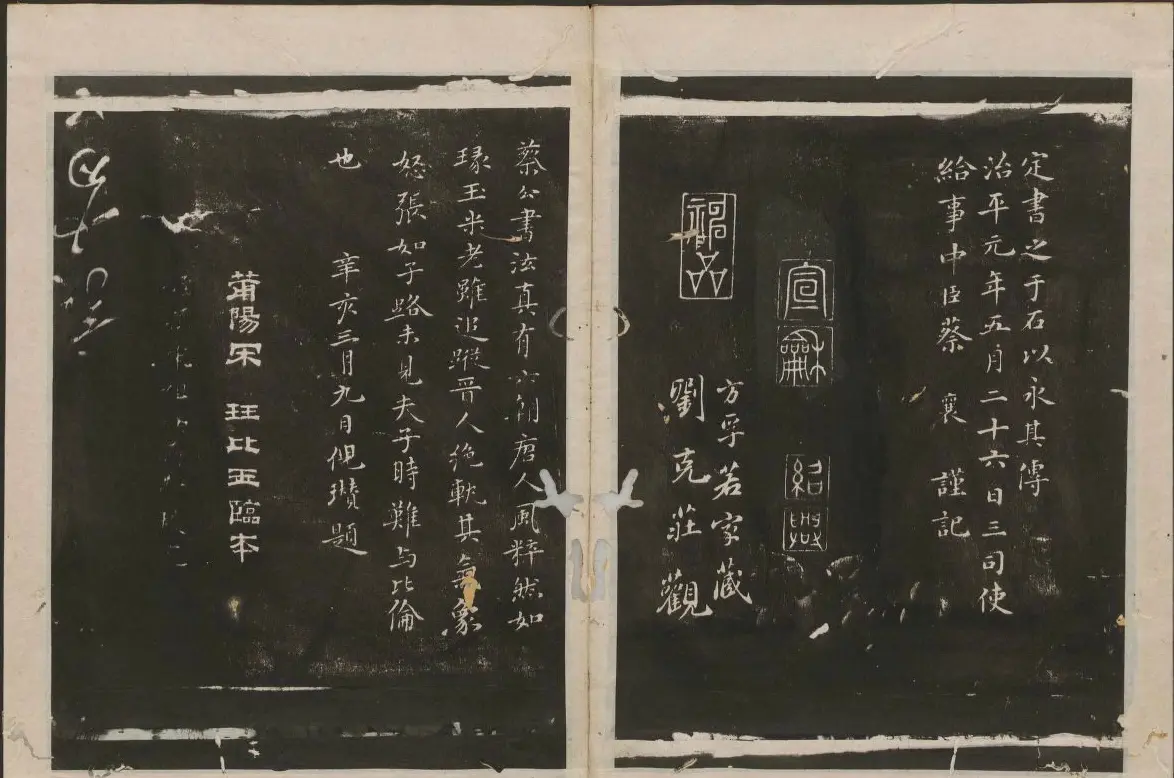 定書之于石以永其傳
治平元年五月二十六日三司使
給事中臣蔡襄謹記
宣龢
紹興
方孚若家藏
劉克莊觀
蔡公書法真有六朝唐人風粹然如
琢玉米老雖追蹤晉人絶軌其氣象
怒張如子路未見夫子時難与比倫
也
辛亥三月九日倪瓚題
莆陽宋珏比玉臨本